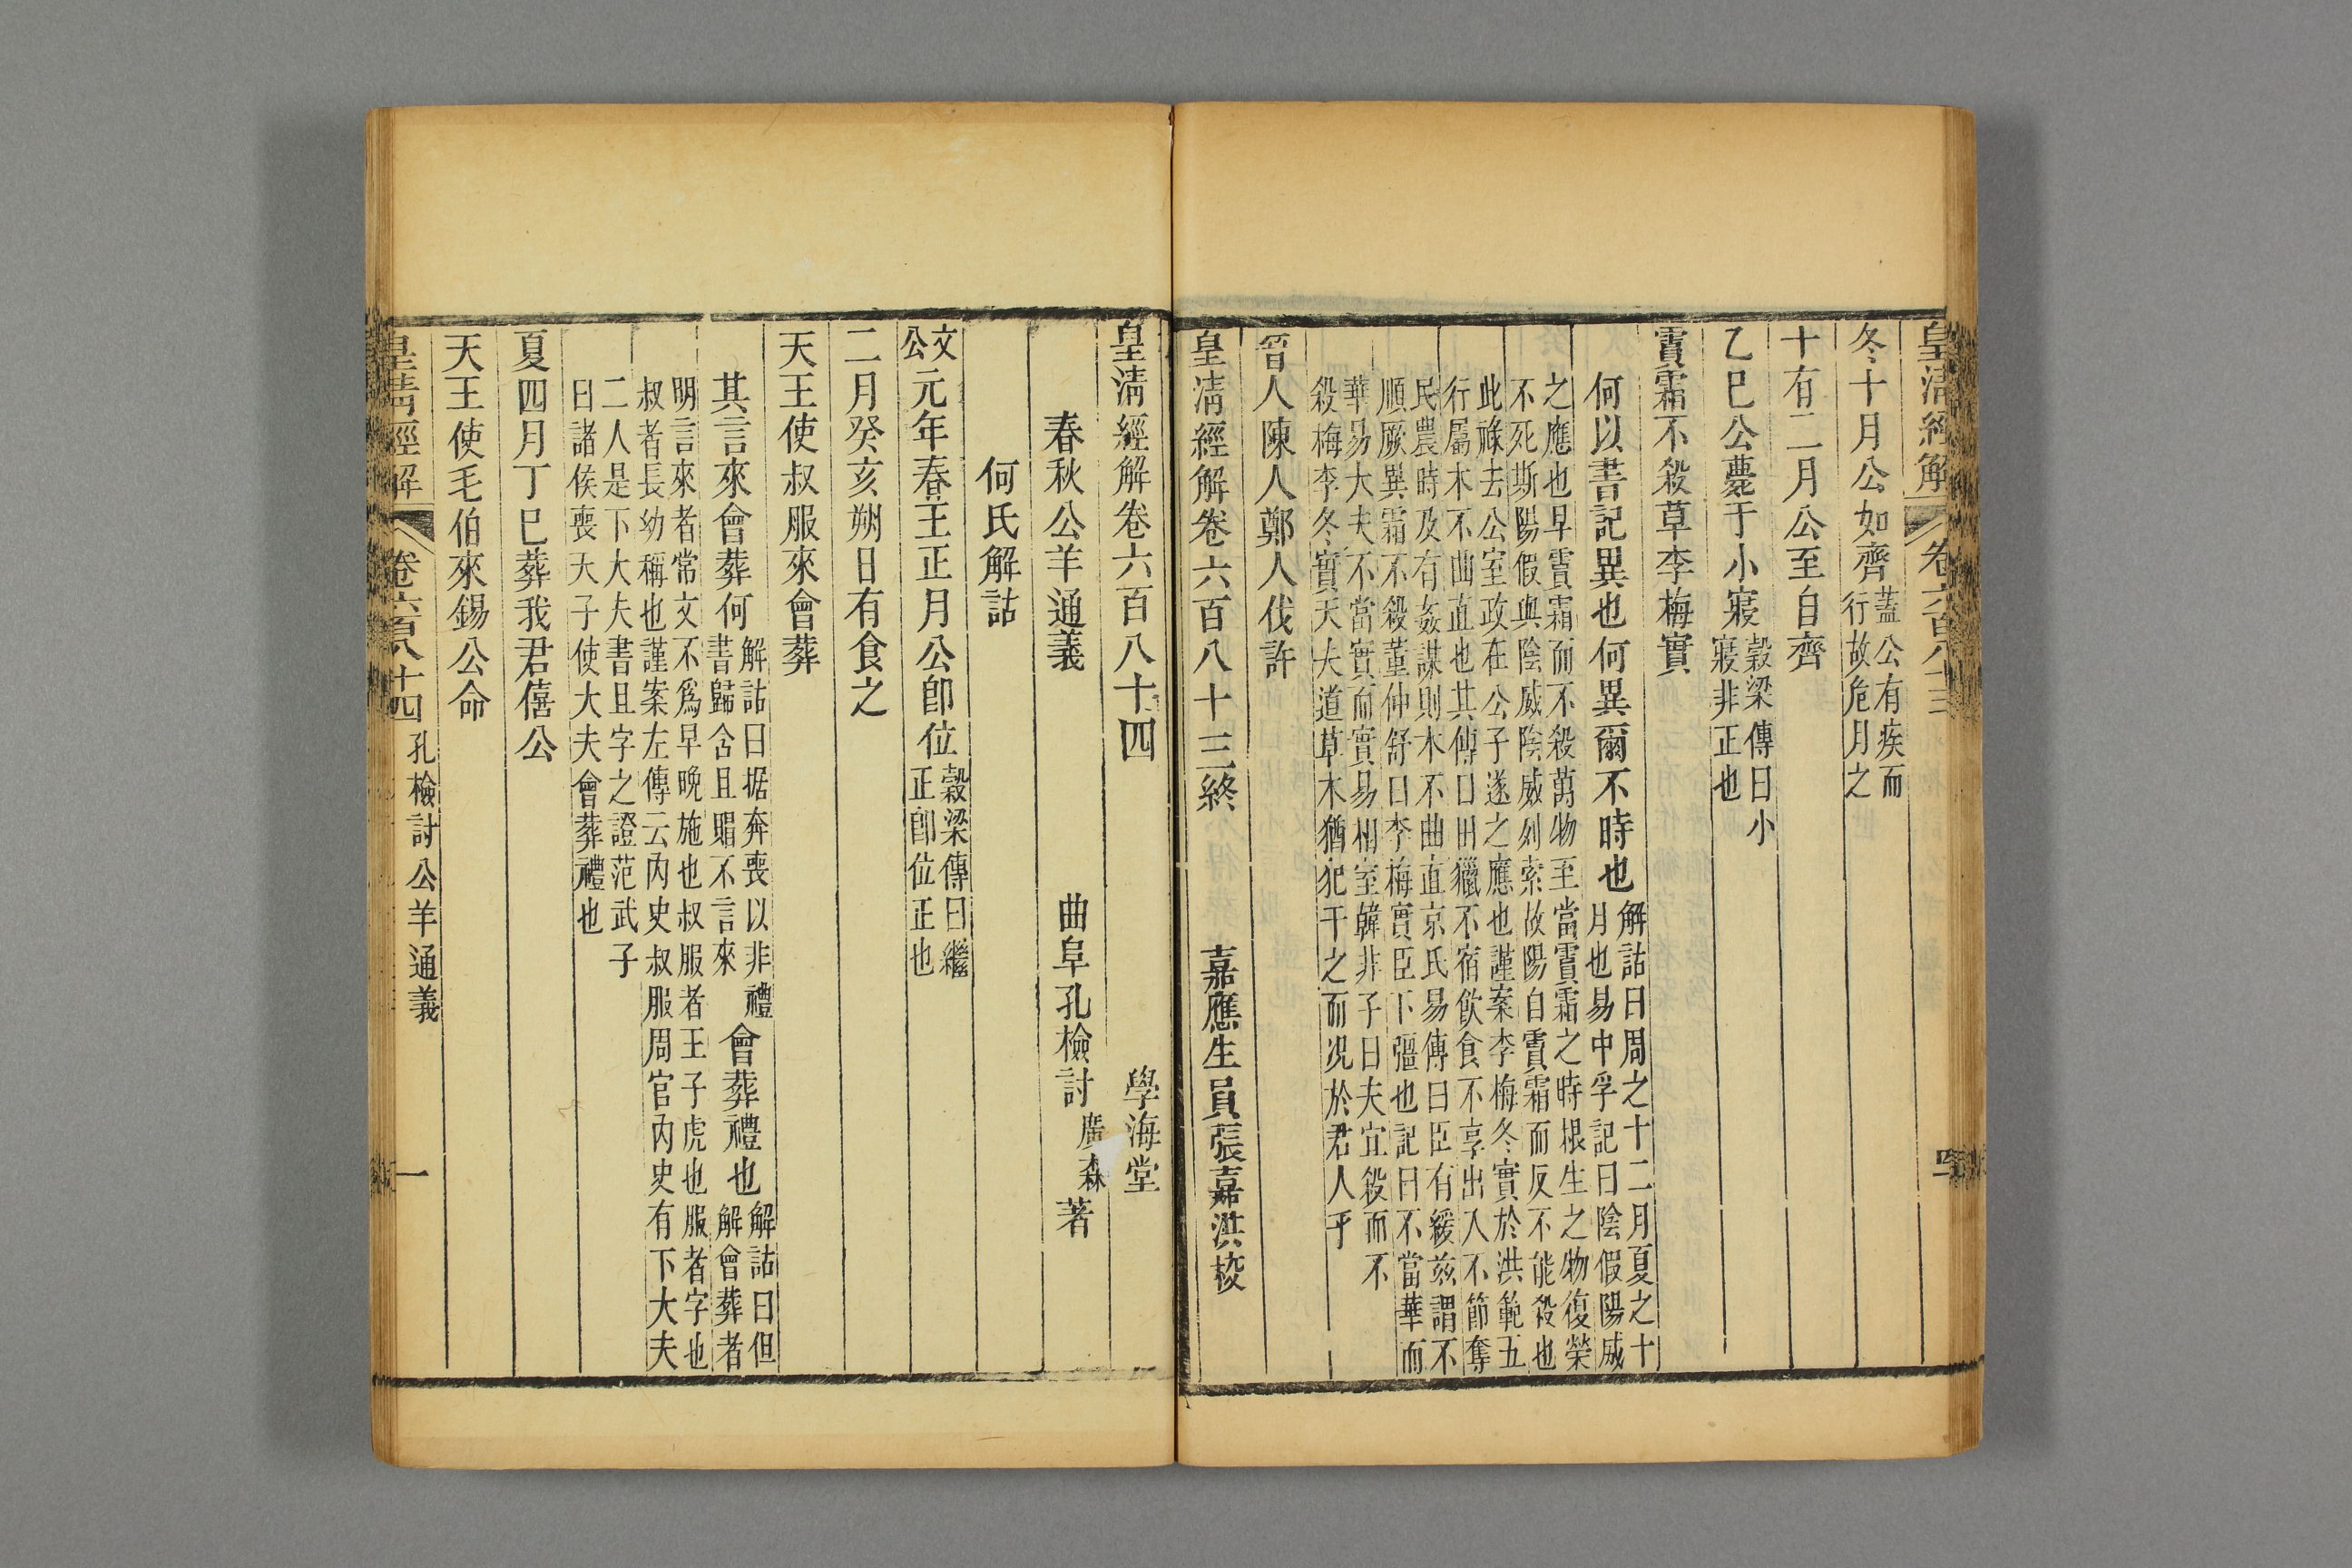 皇清經解 卷六百八十三 四
冬十月公如齊
蓋公有疾而
行故危月之
十有二月公至自齊
乙巳公薨于小寢
穀梁傳曰小
寢非正也
霣霜不殺草李梅實
何以書記異也何異爾不時也
解詁曰周之十二月夏之十
月也易中孚記曰陰假陽威
之應也早霣霜而不殺萬物至當霣霜之時根生之物復榮
不死斯陽假與陰威陰威列索故陽自霣霜而反不能殺也
此祿去公室政在公子遂之應也謹案李梅冬實於洪範五
行屬木不曲直也其傳曰田獵不宿飲食不享出入不節奪
民農時及有姦謀則木不曲直京氏易傳曰臣有緩兹謂不
順厥異霜不殺董仲舒曰李梅實臣下彊也記曰不當華而
華易大夫不當實而實易相室韓非子曰夫宜殺而不
殺梅李冬實天失道草木猶犯干之而況於君人乎
晉人陳人鄭人伐許
皇清經解卷六百八十三終
嘉應生員張嘉洪校
皇清經解卷六百八十四
學海堂
春秋公羊通義
曲阜孔檢討廣森著
何氏解詁
文公元年春王正月公卽位
穀梁傳曰繼
正卽位正也
二月癸亥朔日有食之
天王使叔服來會葬
其言來會葬何
解詁曰据奔喪以非禮
書歸含且賵不言來
會葬禮也
解詁曰但
解會葬者
明言來者常文不爲早晚施也叔服者王子虎也服者字也
叔者長幼稱也謹案左傳云內史叔服周官內史有下大夫
二人是下大夫書且字之證范武子
曰諸侯喪天子使大夫會葬禮也
夏四月丁巳葬我君僖公
天王使毛伯來錫公命
皇清經解 卷六百八十四 孔檢討公羊通義 一